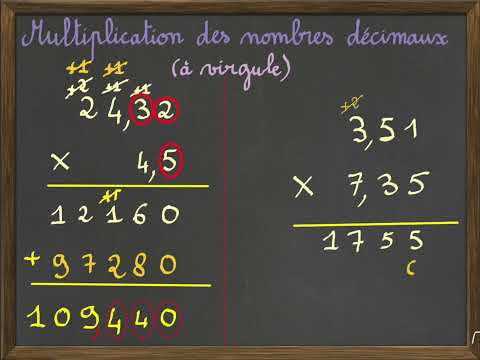 Multiplication des nombres décimaux
(à virgule)
+1 +1
+2 +1 +1
24,32
× 4,5
+1
12160
+ 97280
109,440
+2
3,51
× 7,35
1755